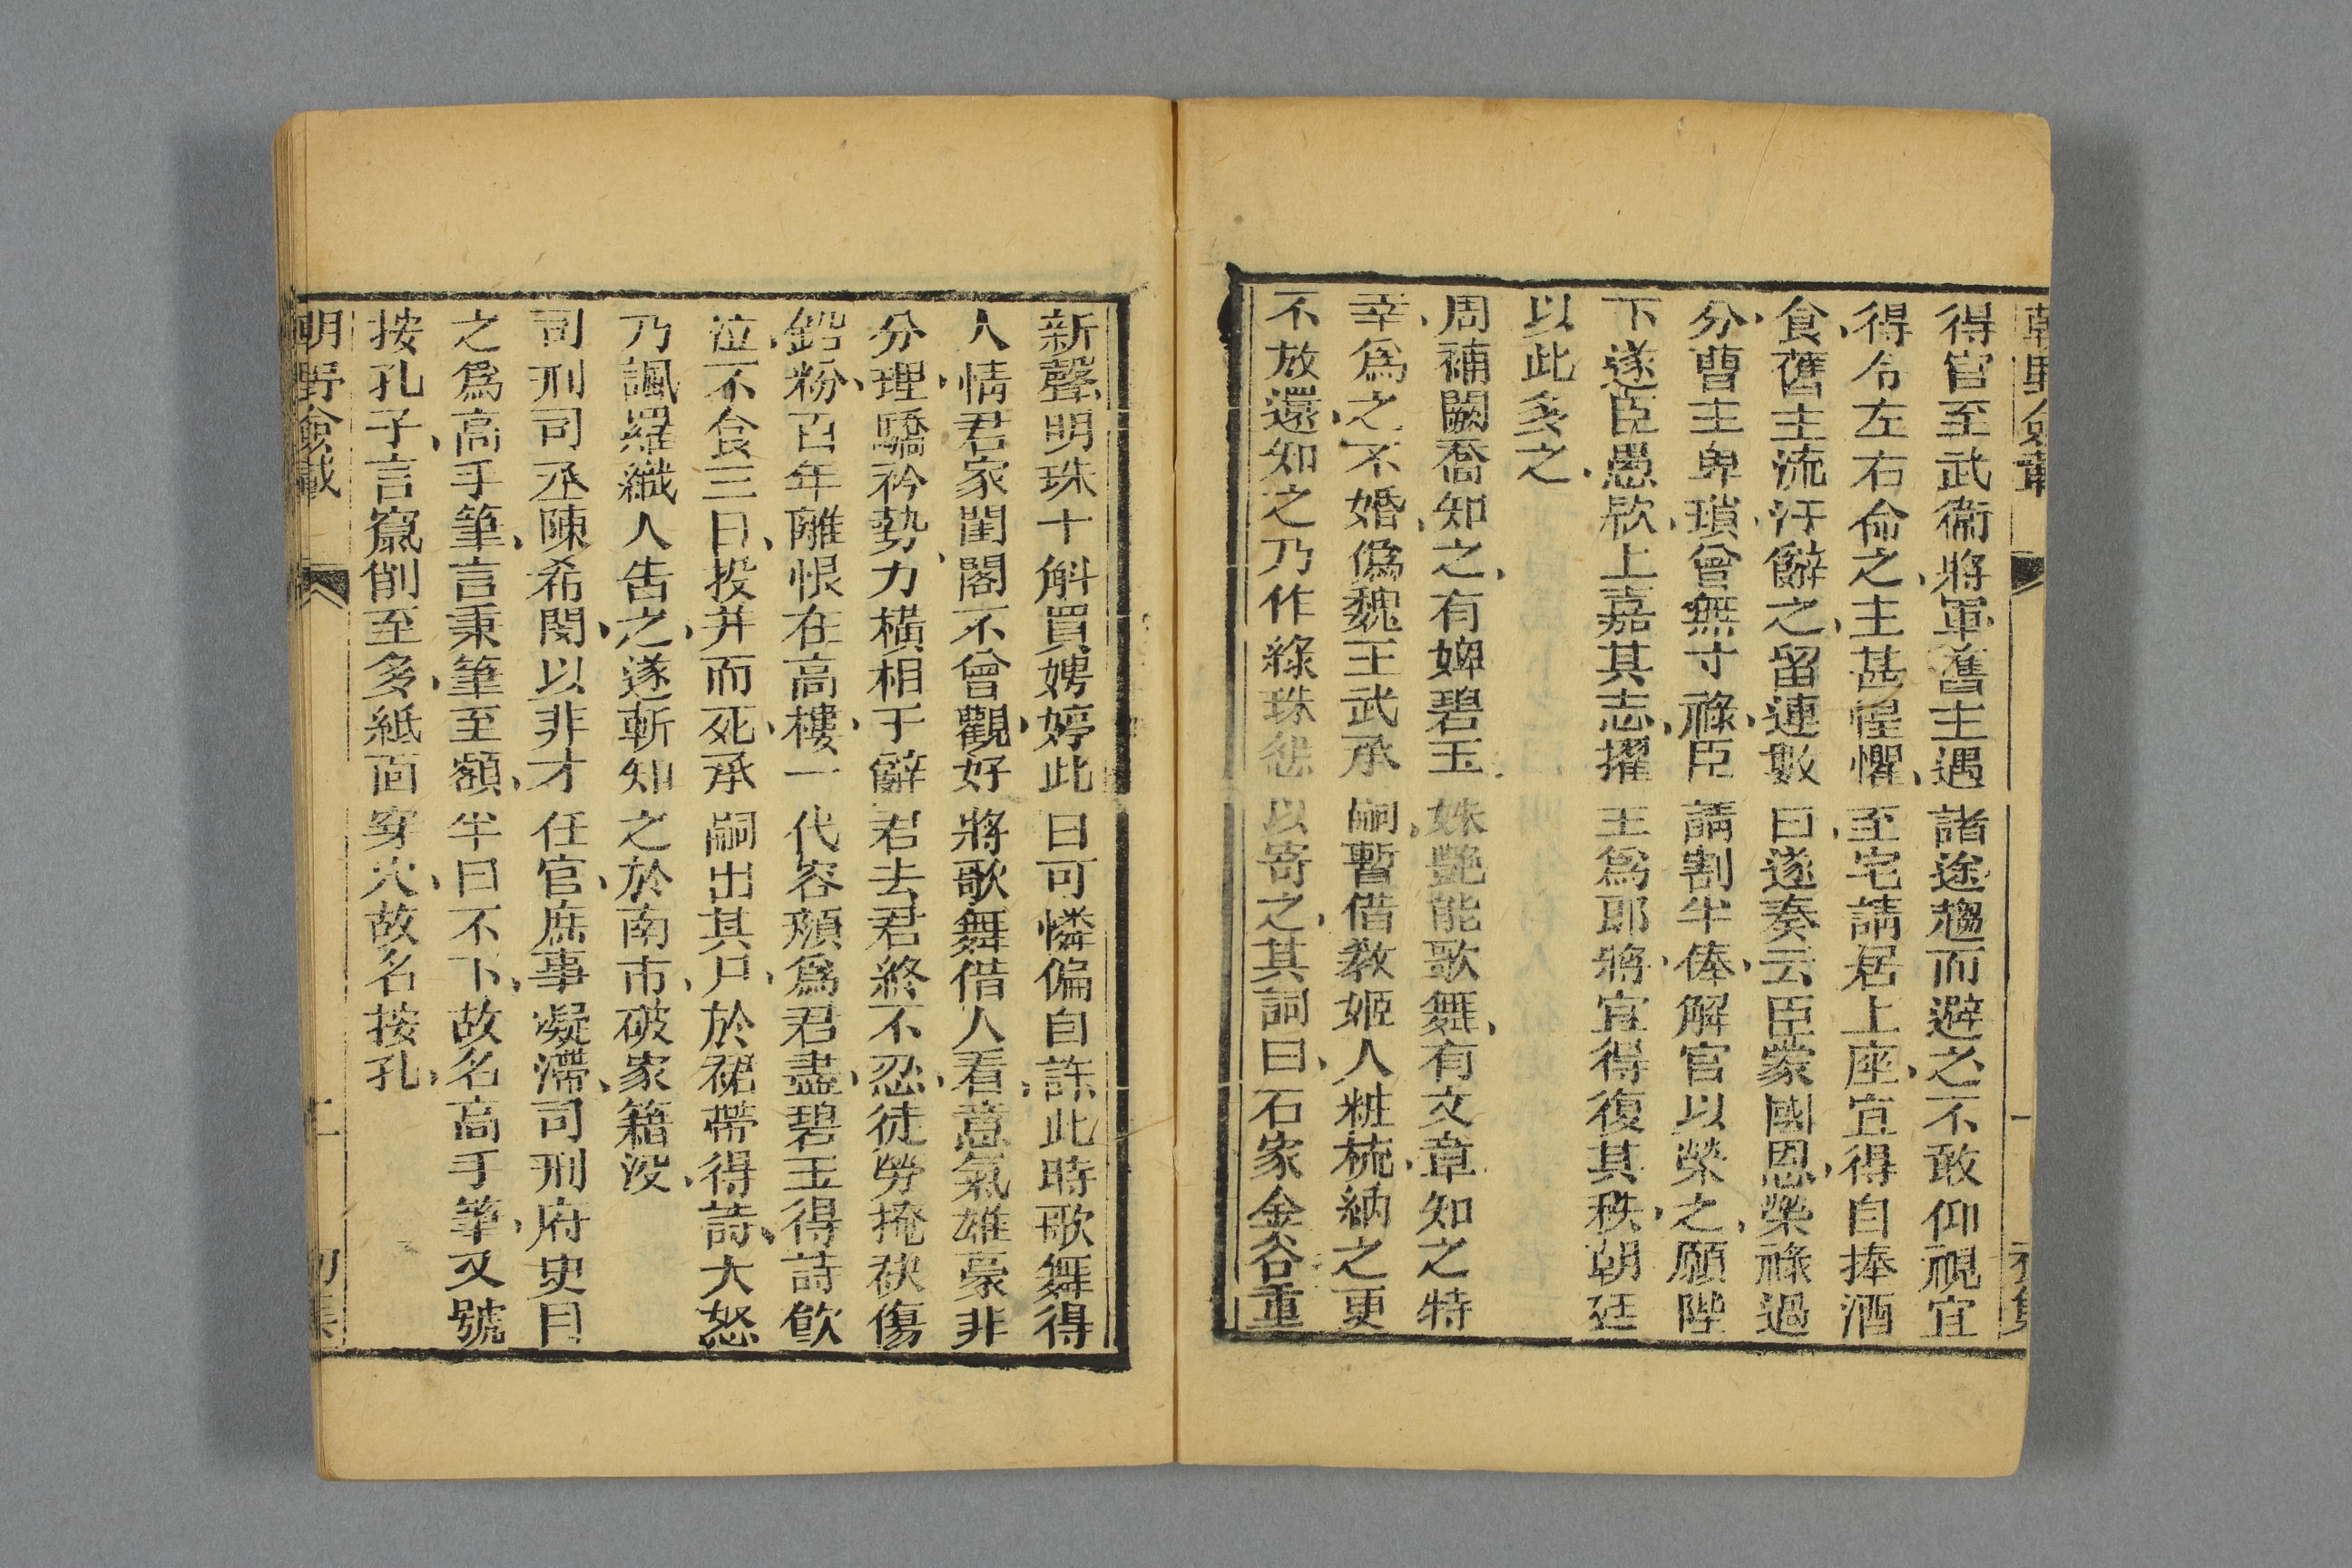 朝野僉載
一
得官至武衞將軍舊主遇諸途趨而避之不敢仰視宜
得令左右命之主甚惶懼至宅請居上座宜得自捧酒
食舊主流汗辭之留連數日遂奏云臣蒙國恩榮祿過
分曹主卑瑣曾無寸祿臣請割半俸解官以榮之願陛
下遂臣愚款上嘉其志擢主爲郎將宜得復其秩朝廷
以此多之
周補闕喬知之有婢碧玉姝艷能歌舞有文章知之特
幸爲之不婚僞魏王武承嗣暫借教姬人粧梳納之更
不放還知之乃作綠珠怨以寄之其詞曰石家金谷重
新聲明珠十斛買娉婷此日可憐偏自許此時歌舞得
人情君家閨閣不曾觀好將歌舞借人看意氣雄豪非
分理驕矜勢力橫相干辭君去君終不忍徒勞掩袂傷
鉛粉百年離恨在高樓一代容顏爲君盡碧玉得詩飮
泣不食三日投井而死承嗣出其尸於裙帶得詩大怒
乃諷羅織人告之遂斬知之於南市破家籍沒
司刑司丞陳希閔以非才任官庶事凝滯司刑府史目
之爲高手筆言秉筆至額半日不下故名高手筆又號
按孔子言竄削至多紙面穿穴故名按孔
朝野僉載
二
初集